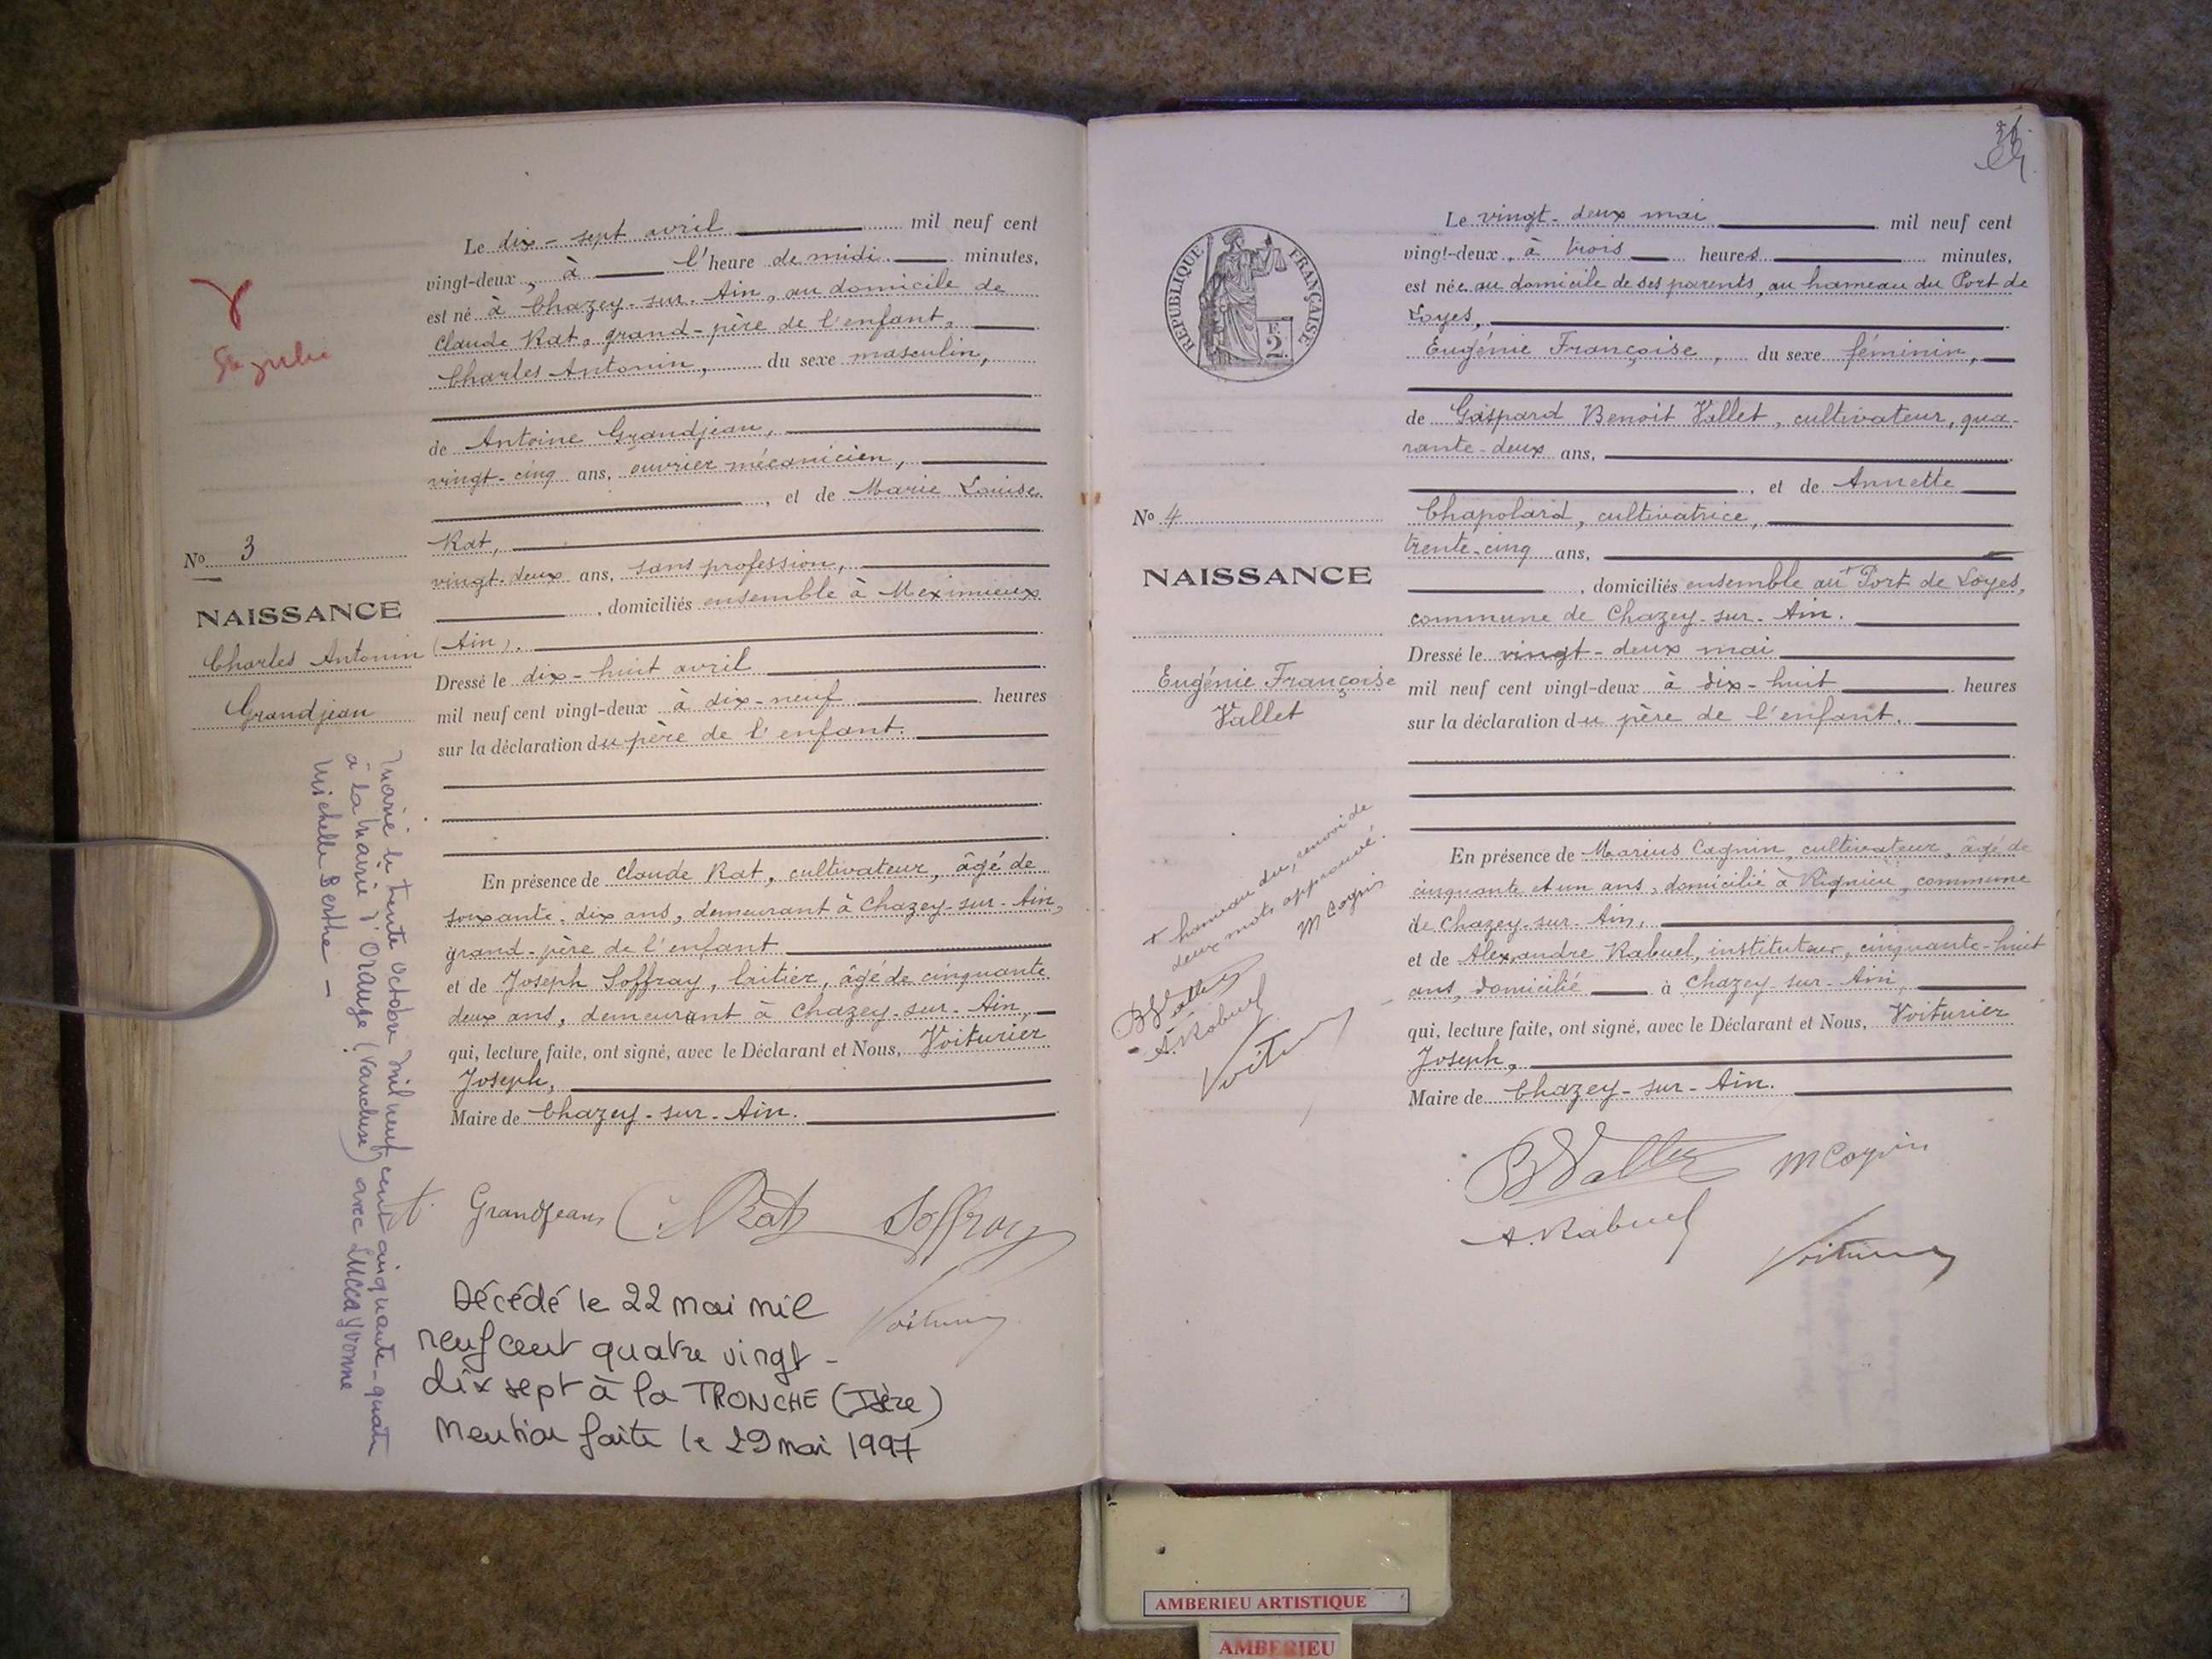 Le dix-sept avril mil neuf cent
vingt-deux, à l'heure de midi. minutes,
est né à Chazey-sur-Ain, au domicile de
Claude Rat, grand-père de l'enfant,
Charles Antonin, du sexe masculin,
de Antoine Grandjean,
vingt-cinq ans, ouvrier mécanicien,
, et de Marie Louise
Rat,
vingt-deux ans, sans profession,
, domiciliés ensemble à Meximieux
(Ain).
Dressé le dix-huit avril
mil neuf cent vingt-deux à dix-neuf heures
sur la déclaration du père de l'enfant.
En présence de Claude Rat, cultivateur, âgé de
soixante-dix ans, demeurant à Chazey-sur-Ain,
grand-père de l'enfant
et de Joseph Soffray, laitier, âgé de cinquante
deux ans, demeurant à Chazey-sur-Ain,
qui, lecture faite, ont signé, avec le Déclarant et Nous, Voiturier
Joseph,
Maire de Chazey-sur-Ain.
No 3
NAISSANCE
Charles Antonin
Grandjean
marié le trente octobre mil neuf cent cinquante-quatre
à la mairie d'Orange (Vaucluse) avec LUCCA Yvonne
Michelle Berthe -
Grandjean C Rat Soffray
Voiturier
Décédé le 22 mai mil
neuf cent quatre vingt-
dix sept à la TRONCHE (Isère)
Mention faite le 29 mai 1997
RÉPUBLIQUE FRANÇAISE
F.
2.
Le vingt-deux mai mil neuf cent
vingt-deux, à trois heures minutes,
est née au domicile de ses parents, au hameau du Port de
Loyes,
Eugénie Françoise, du sexe féminin,
de Gaspard Benoit Vallet, cultivateur, qua-
rante-deux ans,
, et de Annette
Chapolard, cultivatrice,
trente-cinq ans,
, domiciliés ensemble au + Port de Loyes,
commune de Chazey-sur-Ain.
Dressé le vingt-deux mai
mil neuf cent vingt-deux à dix-huit heures
sur la déclaration du père de l'enfant.
En présence de Marius Cognin, cultivateur, âgé de
cinquante et un ans, domicilié à Rignieu, commune
de Chazey-sur-Ain,
et de Alexandre Rabuel, instituteur, cinquante-huit
ans, domicilié à Chazey-sur-Ain,
qui, lecture faite, ont signé, avec le Déclarant et Nous, Voiturier
Joseph,
Maire de Chazey-sur-Ain.
No 4
NAISSANCE
Eugénie Françoise
Vallet
+ hameau du, renvoi de
deux mots, approuvé.
M Cognin
B Vallet
A. Rabuel
Voiturier
B Vallet M Cognin
A. Rabuel
Voiturier
AMBERIEU ARTISTIQUE
AMBERIEU